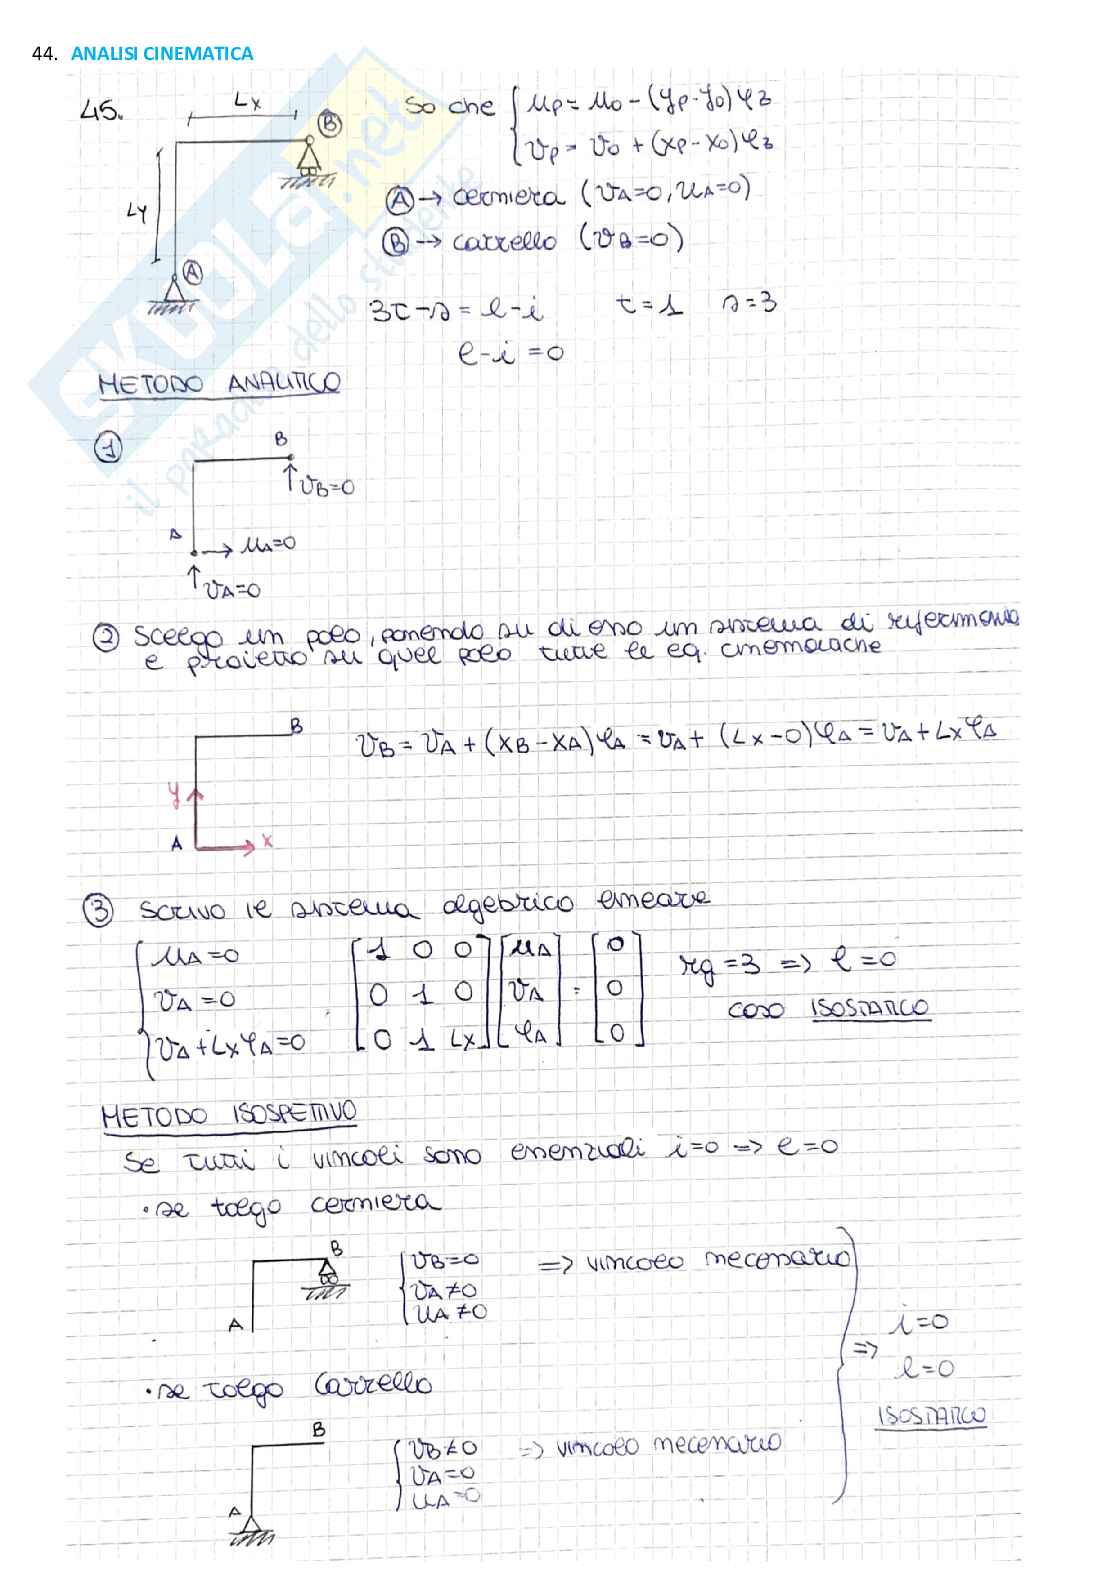 44. ANALISI CINEMATICA
45.
Lx
B
Ly
A
So che { up = uo - (yp - yo) φz
vp = vo + (xp - xo) φz
A → cerniera (vA=0, uA=0)
B → carrello (vB=0)
3t - s = l - i t = 1 s = 3
l - i = 0
METODO ANALITICO
1
B
vB=0
A
uA=0
vA=0
2 Scelgo un polo, ponendo su di esso un sistema di riferimento
e proietto su quel polo tutte le eq. cinematiche
B
vB = vA + (xB - xA) φA = vA + (Lx - 0) φA = vA + Lx φA
y
A x
3 Scrivo il sistema algebrico lineare
{ uA = 0 [1 0 0] [uA] [0]
vA = 0 [0 1 0] [vA] = [0]
vA + Lx φA = 0 [0 1 Lx] [φA] [0]
rg = 3 => l = 0
caso ISOSTATICO
METODO ISOSPETIVO
Se tutti i vincoli sono essenziali i=0 => l=0
• se tolgo cerniera
B
A
{ vB=0 => vincolo necessario
vA≠0
uA≠0
• se tolgo Carrello
B
A
{ vB≠0 => vincolo necessario
vA=0
uA=0
=> i=0
l=0
ISOSTATICO
SKUOLA.net
il paradiso dello studente